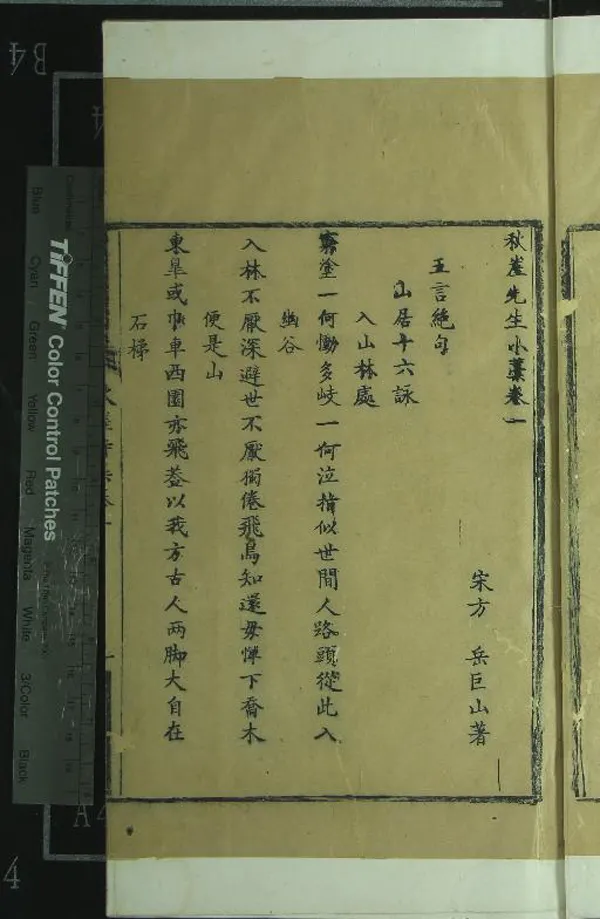 秋崖先生小藁卷一
宋方　岳巨山著
五言絶句
山居十六詠
入山林處
窮塗一何慟多岐一何泣指似世間人路頭從此入
幽谷
入林不厭深避世不厭獨倦飛鳥知還毋憚下喬木
便是山
東臯或巾車西園亦飛葢以我方古人兩脚大自在
石梯
TIFFEN Color Control Patches
Blue Cyan Green Yellow Red Magenta White 3/Color Black
B4
4